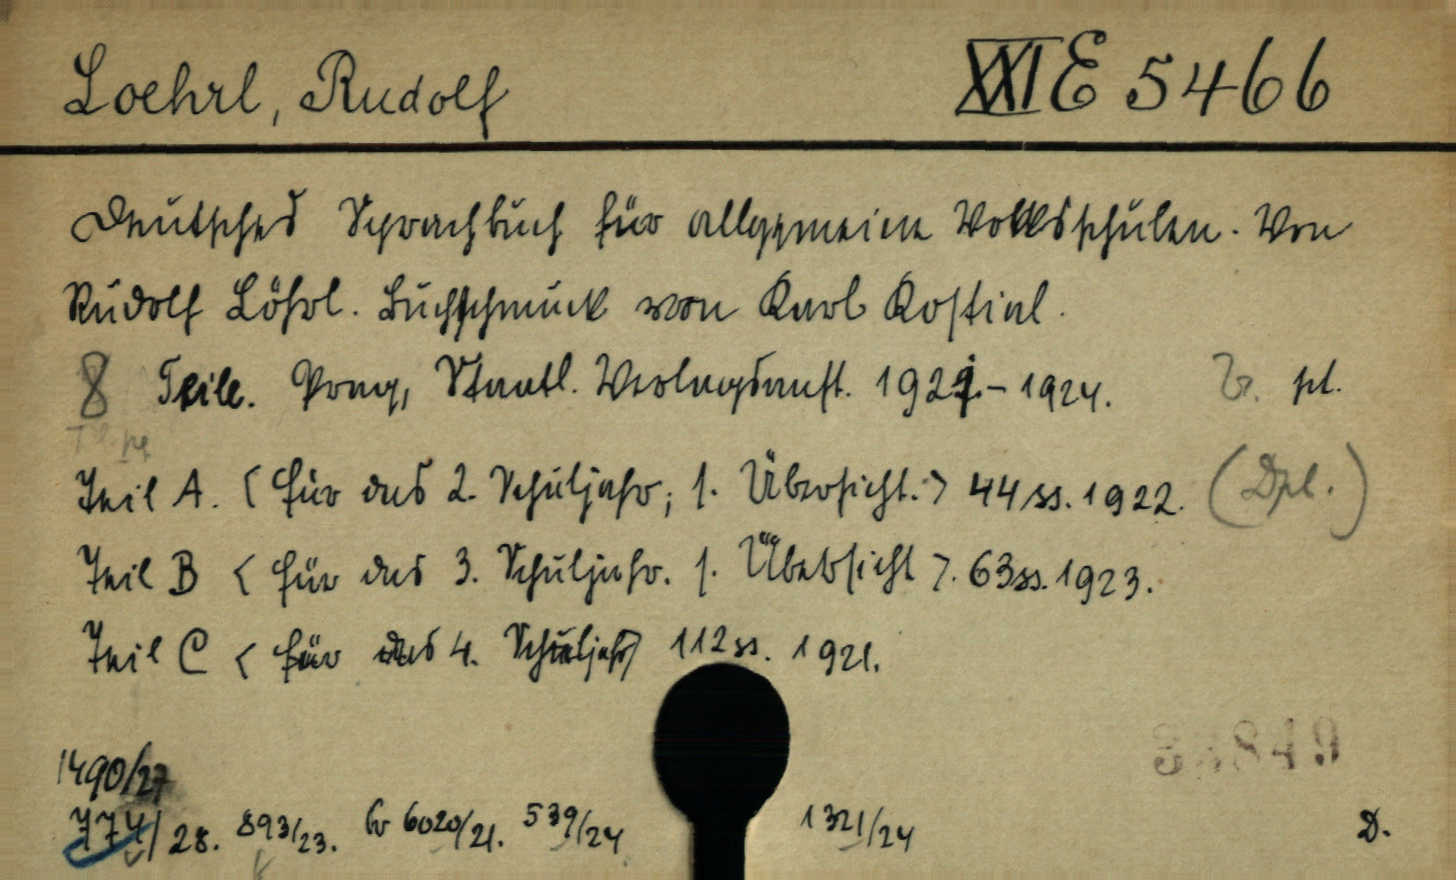 Loehrl, Rudolf XXI E 5466
Deutsches Sprachbuch für allgemeine Volksschulen. Von
Rudolf Löhrl. Buchschmuck von Karl Kostial.
8 Teile. Prag, Staatl. Verlagsanst. 1921.-1924. pl.
Teil A. < für das 2. Schuljahr; 1. Übersicht. > 44 ss. 1922. (Dpl.)
Teil B < für das 3. Schuljahr. 1. Übersicht >. 63 ss. 1923.
Teil C < für das 4. Schuljahr> 112 ss. 1921.
1490/27
774/28. 893/23. 6020/21. 539/24 1321/24 D.